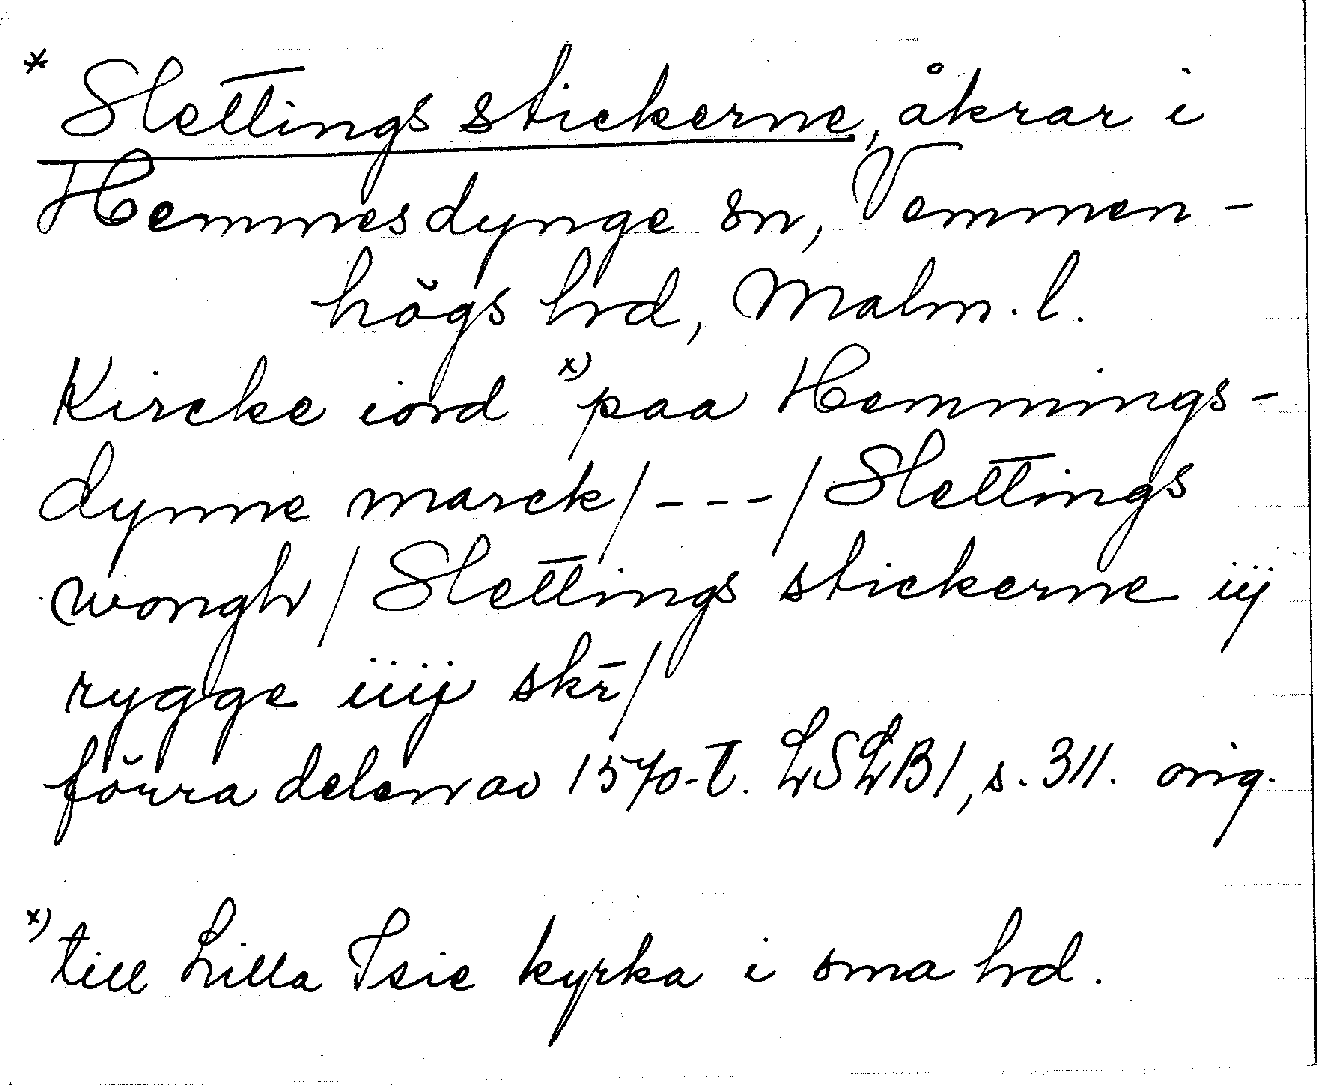 * Slettings stickerne, åkrar i
Hemmesdynge sn, Vemmen-
högs hrd, Malm. l.
Kircke iord x) paa Hemmings-
dynne marck/---/Slettings
wongh/Slettings stickerne iij
rygge iiij skr̄/
förra delen av 1570-t. LSLB1, s. 311. orig.
x) till Lilla Isie kyrka i sma hrd.